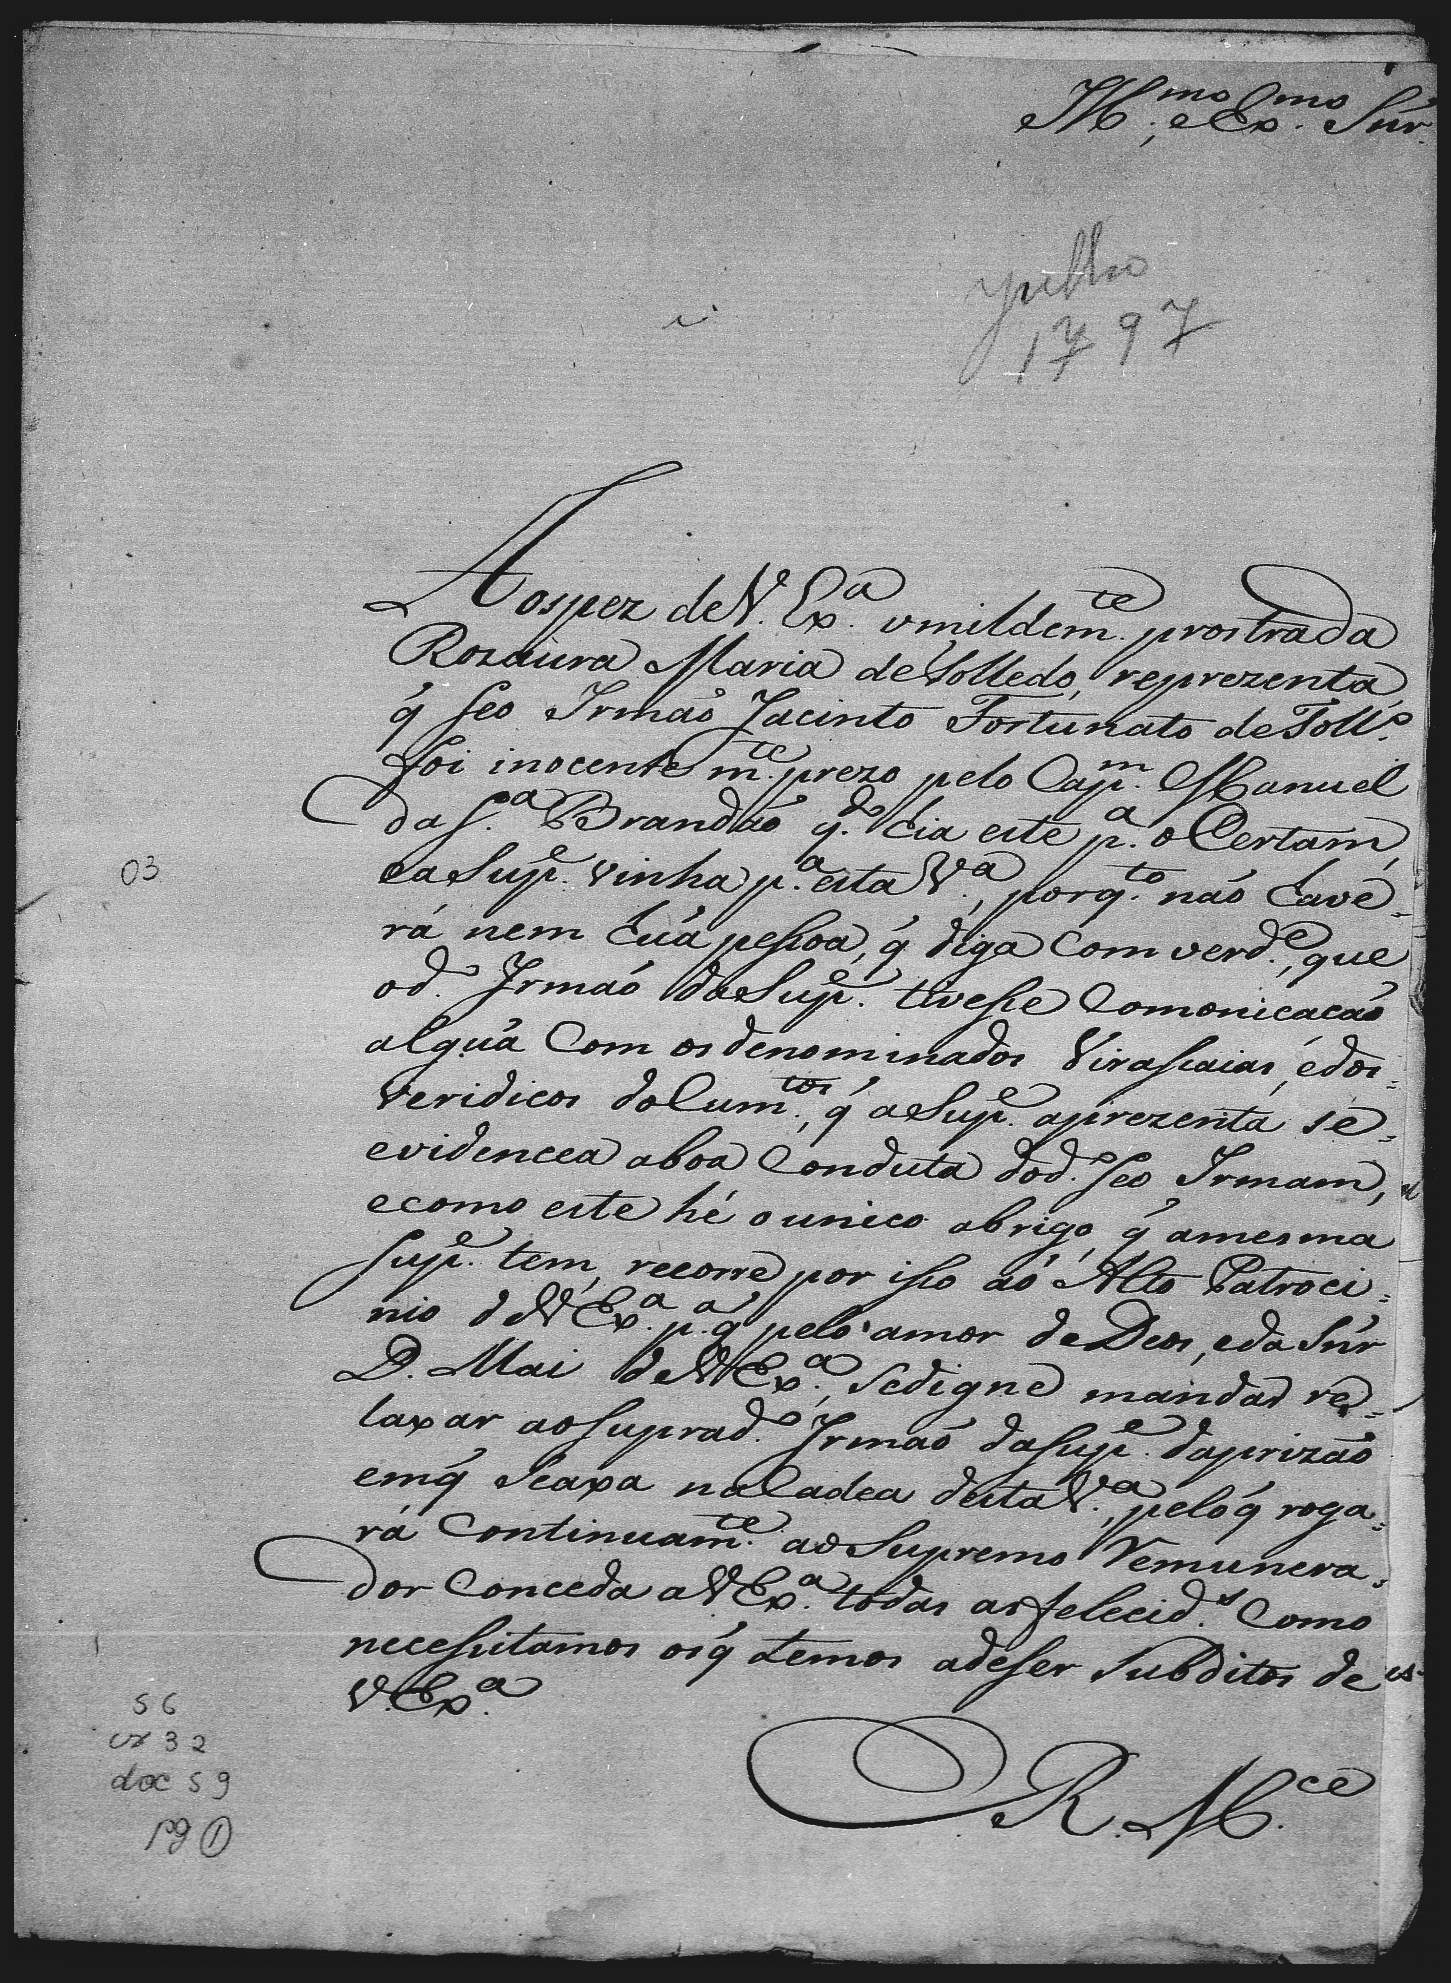 Ill.mo, e Ex.mo Snr.
julho
1797
Aos pez de V. Ex.a umildem.te prostrada
Rozaura Maria de Tolledo, reprezenta,
q̃ seo Irmaõ Jacinto Fortunato de Toll.o
foi inocente m.te prezo pelo Cap.m Manuel
da S.a Brandaõ q.do hia este p.a o Certam,
e a Sup.e vinha p.a esta V.a, porq.to naõ have-
rá nem huá pessoa, q̃ diga com verd.e, que
o d.o Irmaõ da Sup.e tivesse Comonicacaõ
algua Com os denominados Virascaias, e dos
veridicos docum.tos, q̃ a Sup.e aprezenta se
evidencea a boa Conduta do d.o seo Irmam,
e como este hé o unico abrigo, q̃ a mesma
Sup.e tem, recorre por isso aó Alto Patroci-
nio de V Ex.a p.a q̃ pelo amor de Deos, e da Snr
D. Mai de V Ex.a, se digne mandar re-
laxar ao suprad.o Irmaõ da Sup.e da prizaõ
em q̃ se axa na Cadea desta V.a, pelo q̃ roga-
rá Continuam.te ao Supremo Remunera-
dor Conceda a V Ex.a todas as felecid.s Como
necessitamos os q̃ temos a de ser Subditos de
V. Ex.a
E. R. M.ce
03
56
cx 32
doc 59
pg 1